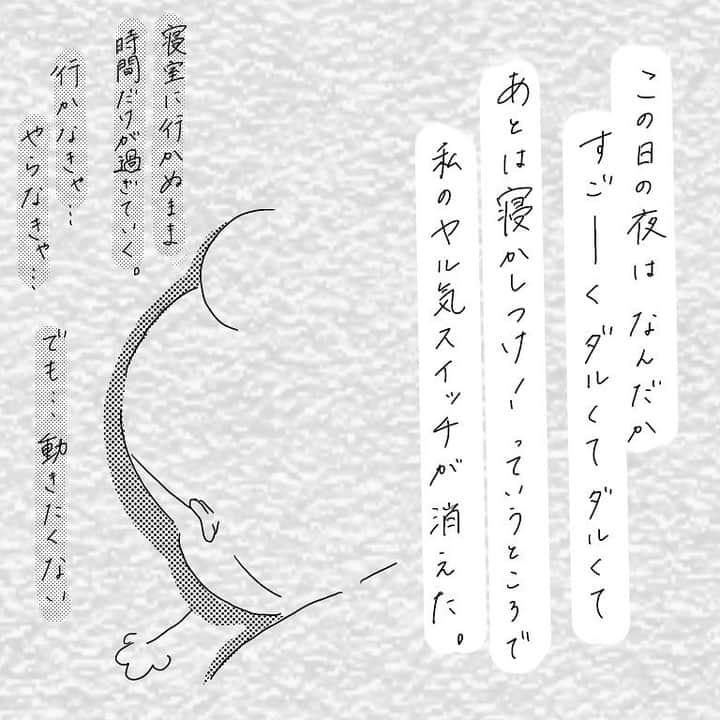 この日の夜はなんだか
すごーくダルくてダルくて
あとは寝かしつけ！っていうところで
私のヤル気スイッチが消えた。
寝室に行かぬまま
時間だけが過ぎていく。
行かなきゃ…
やらなきゃ…
でも…動きたくない